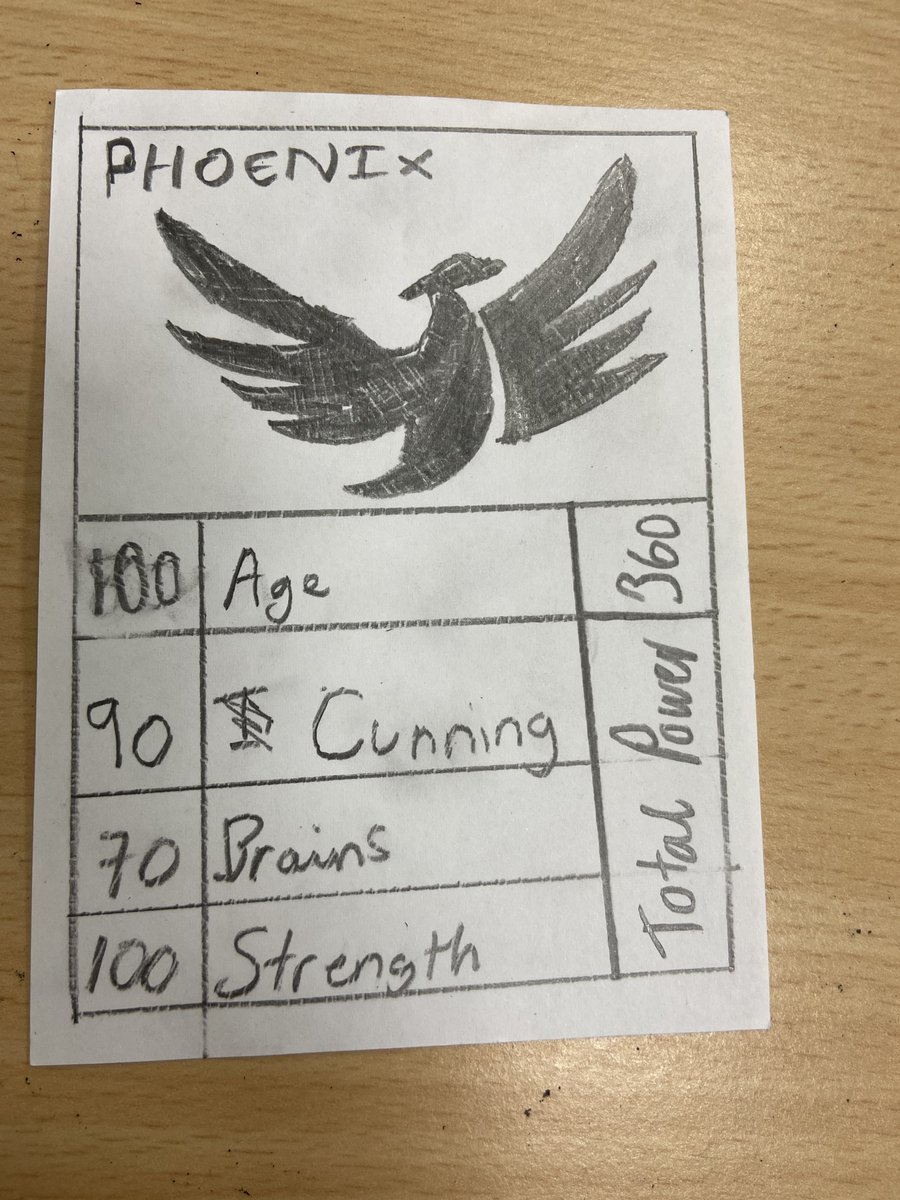 PHOENIX
100 Age
90 Cunning
70 Brains
100 Strength
Total Power 360